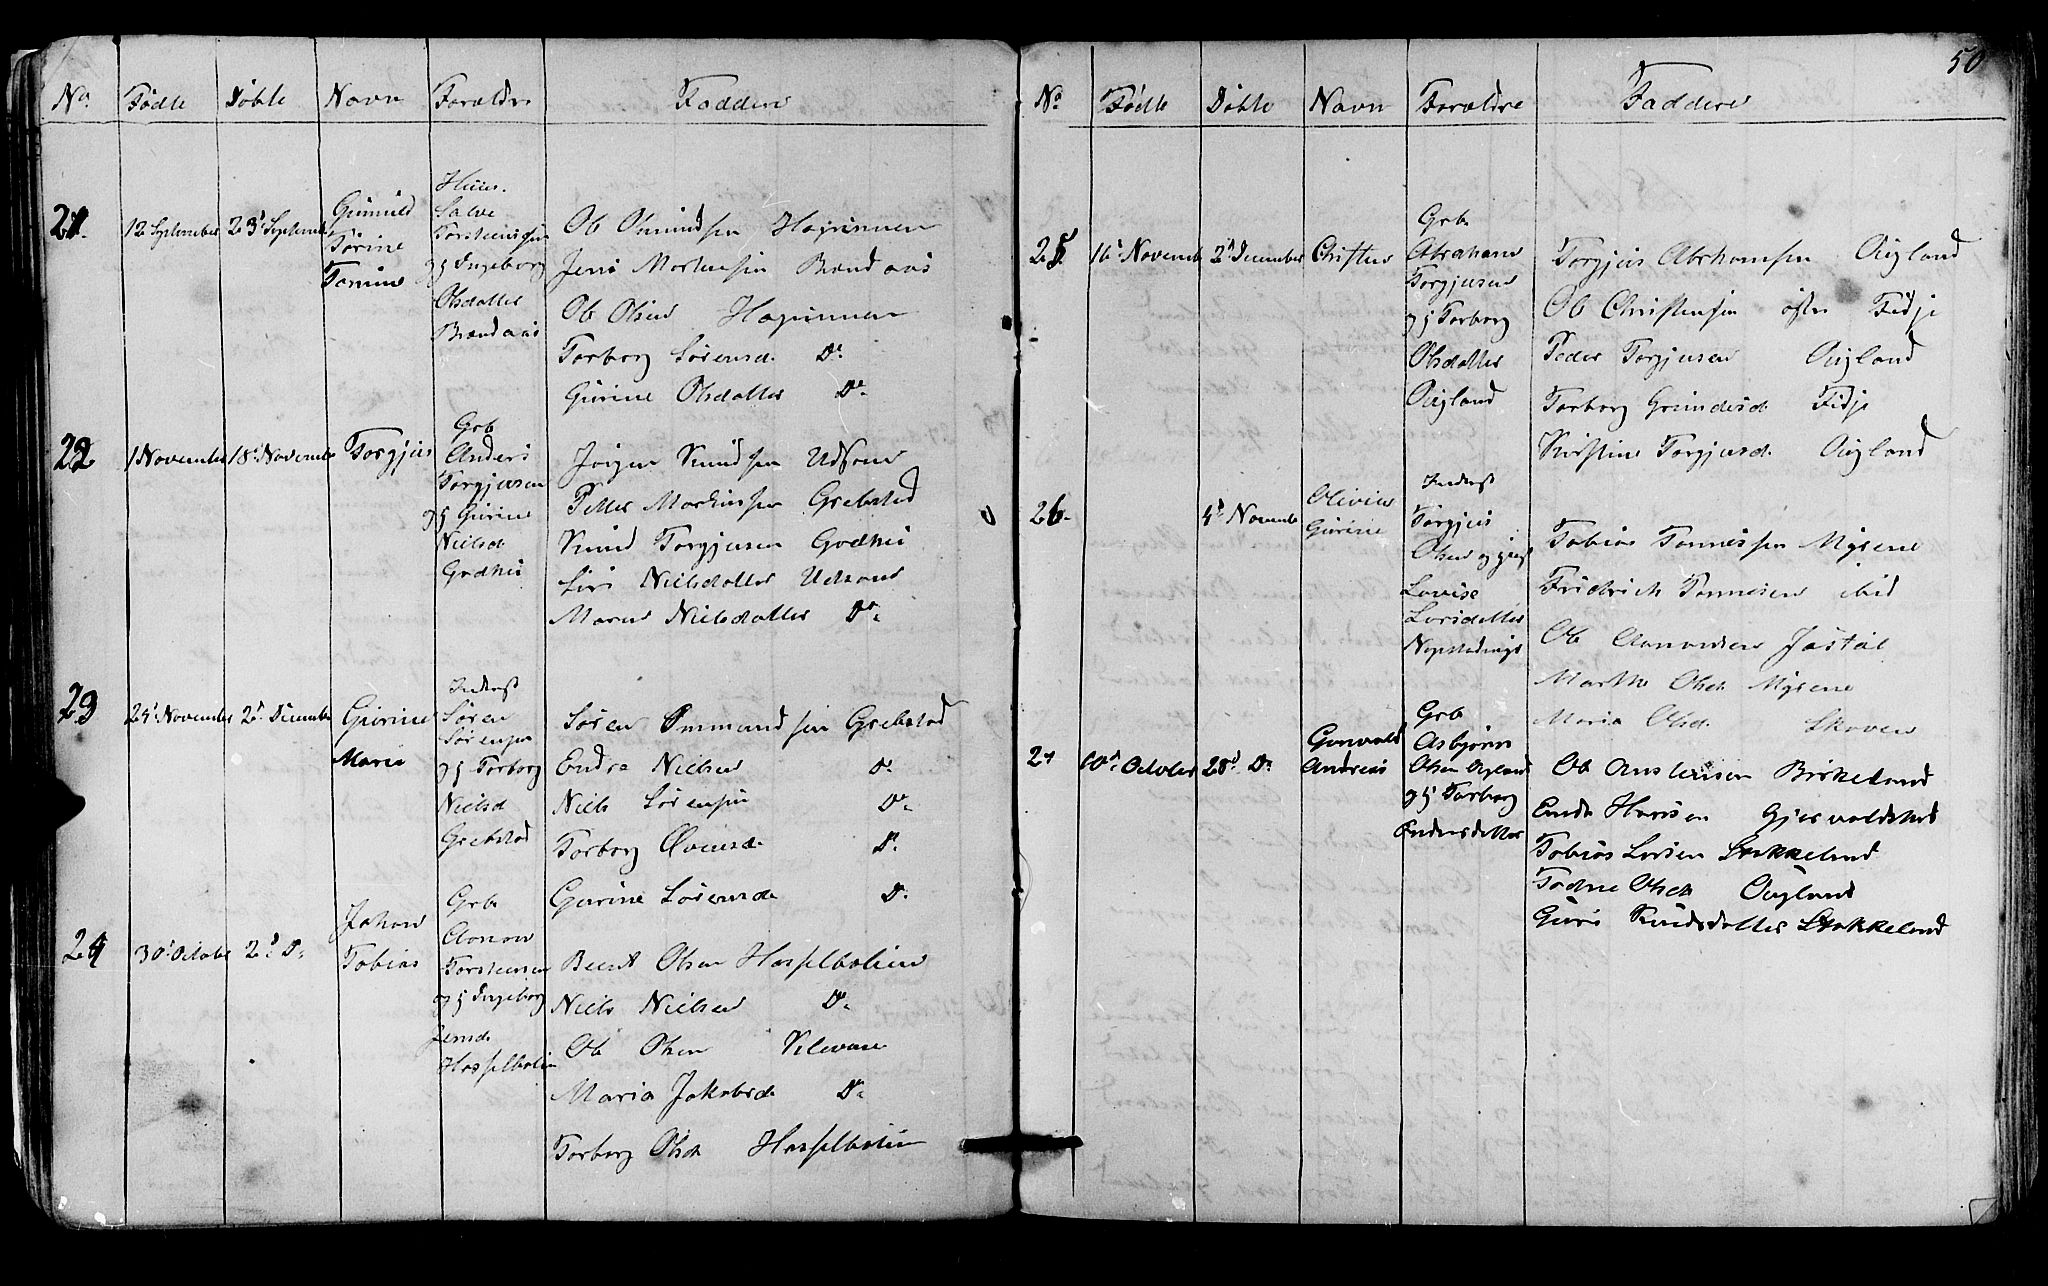 No. Fødte Døbte Navn Forældre Faddere
21. 12 September 23d Septemb
Gunnild
Torine
Tomine
Huus.
Salve
Torstensen
og Ingeborg
Olsdatter
Brandaas
Ole Omundsen
Jens Mortensen Brandaas
Ole Olsen
Torborg Sørensd. Do.
Gurine Olsdatter Do.
22 1 November 18d Novemb Torgjus
Grb
Anders
Torgjusen
og Gurine
Nielsd
Godhei
Jørgen Knudsen Udsone
Petter Grebstad
Knud Torgjusen Godhei
Siri Nielsdatter Udsone
Maren Nielsdatter Do.
23 24d November 2d December
Gurine
Marie
Inderst
Søren
Sørensen
og Torborg
Nielsd
Grebstad
Søren Ommundsen Grebstad
Endre Nielsen Do.
Niels Sørensen Do.
Torborg Do.
Gurine Sørensd. Do.
24 30d October 2d Do.
Johan
Tobias
Grb
Aanon
Torstensen
og Ingeborg
Jensd.
Hasselbalien
Berent Olsen Hasselbalien
Niels Nielsen Do.
Ole Olsen
Maria Jakobsd. Do.
Torborg Olsd. Hasselbalien
50
No Fødte Døbte Navn Forældre Faddere
25 16d Novemb 2d December Christen
Grb
Abraham
Torgjusen
og Torborg
Olsdatter
Øigland
Torgjus Abrahamsen Øigland
Ole Christensen øfre Fidje
Peder Torgjusen Øigland
Torborg Fidje
Kirstine Torgjusd. Øigland
26. 4d Novemb
Olivia
Gurine
Inderst
Torgjus
Olsen og
Lovise
Larsdatter
Tobias Tønnessen Mysene
Fridrich Tønnesen ibid
Ole
Marthe Olsd. Mysene
Maria Olsd. Skoven
27 10d October 28d Do.
Gunvald
Andreas
Grb
Asbjørn
Olsen Øigland
og Torborg
Endresdatter
Ole Austensen Birkeland
Endre Hansen Gjervoldstad
Tobias Larsen Stokkeland
Todne Olsd. Øigland
Guri Knudsdatter Stokkeland